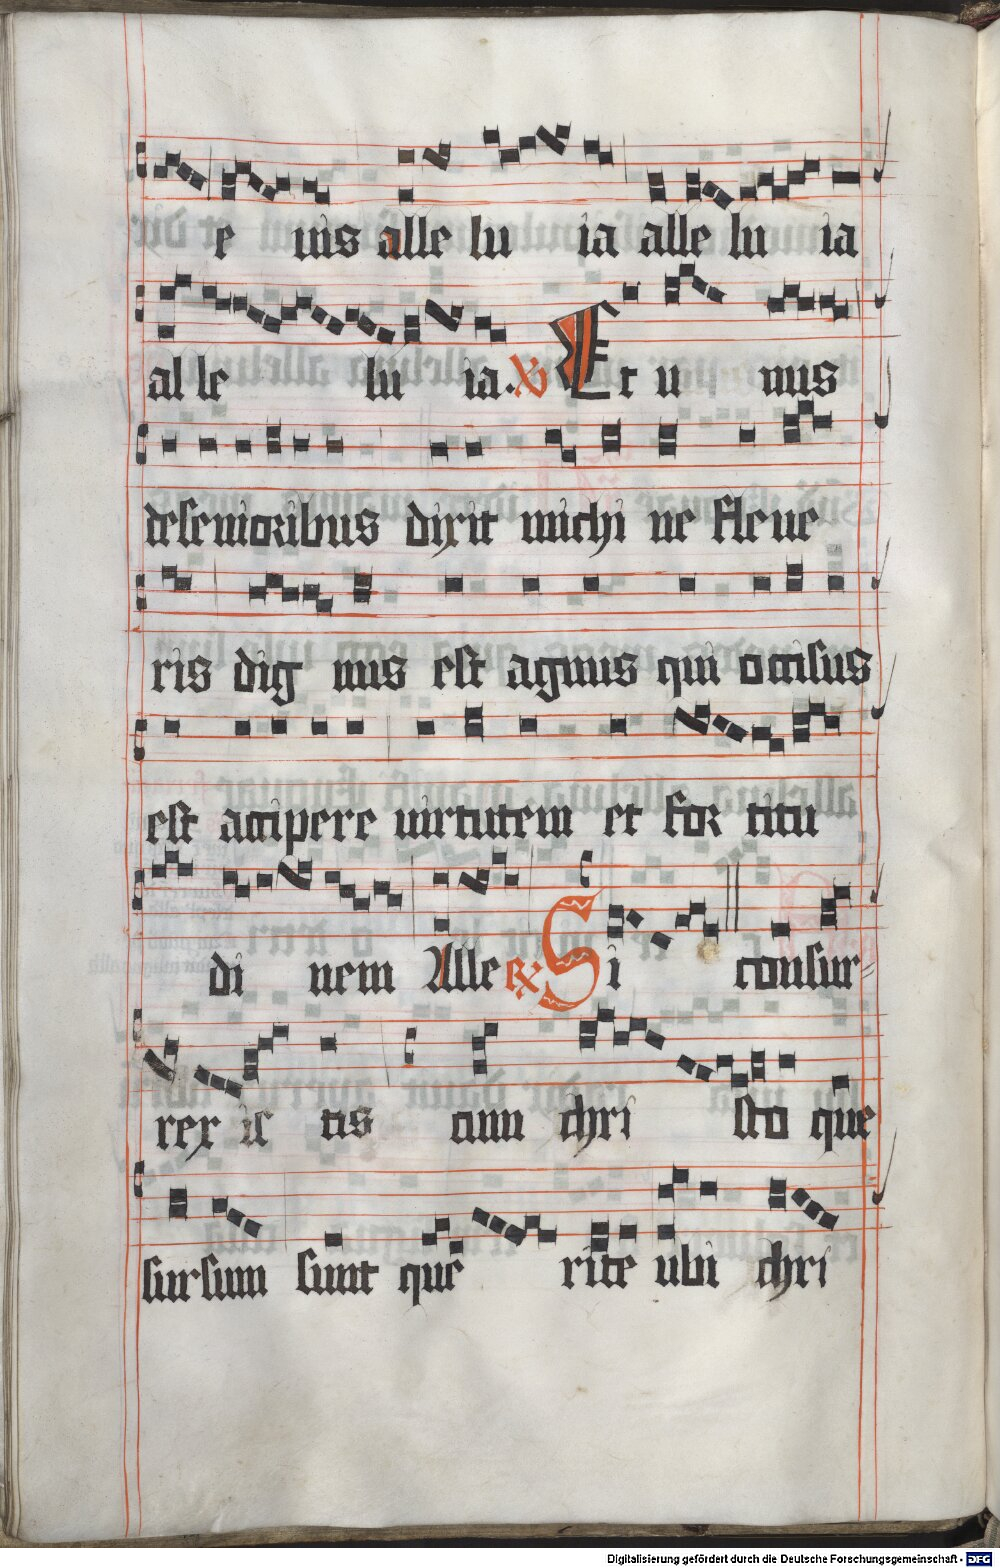 e ius alle lu ia alle lu ia
al le lu ia. ℣ Et u nus
de senioribus dixit michi ne fle ue
ris dig nus est agnus qui occisus
est accipere uirtutem et for titu
di nem Alle ℟ Si consur
rex is tis cum chri sto que
sursum sunt que rite ubi chri
Digitalisierung gefördert durch die Deutsche Forschungsgemeinschaft - DFG